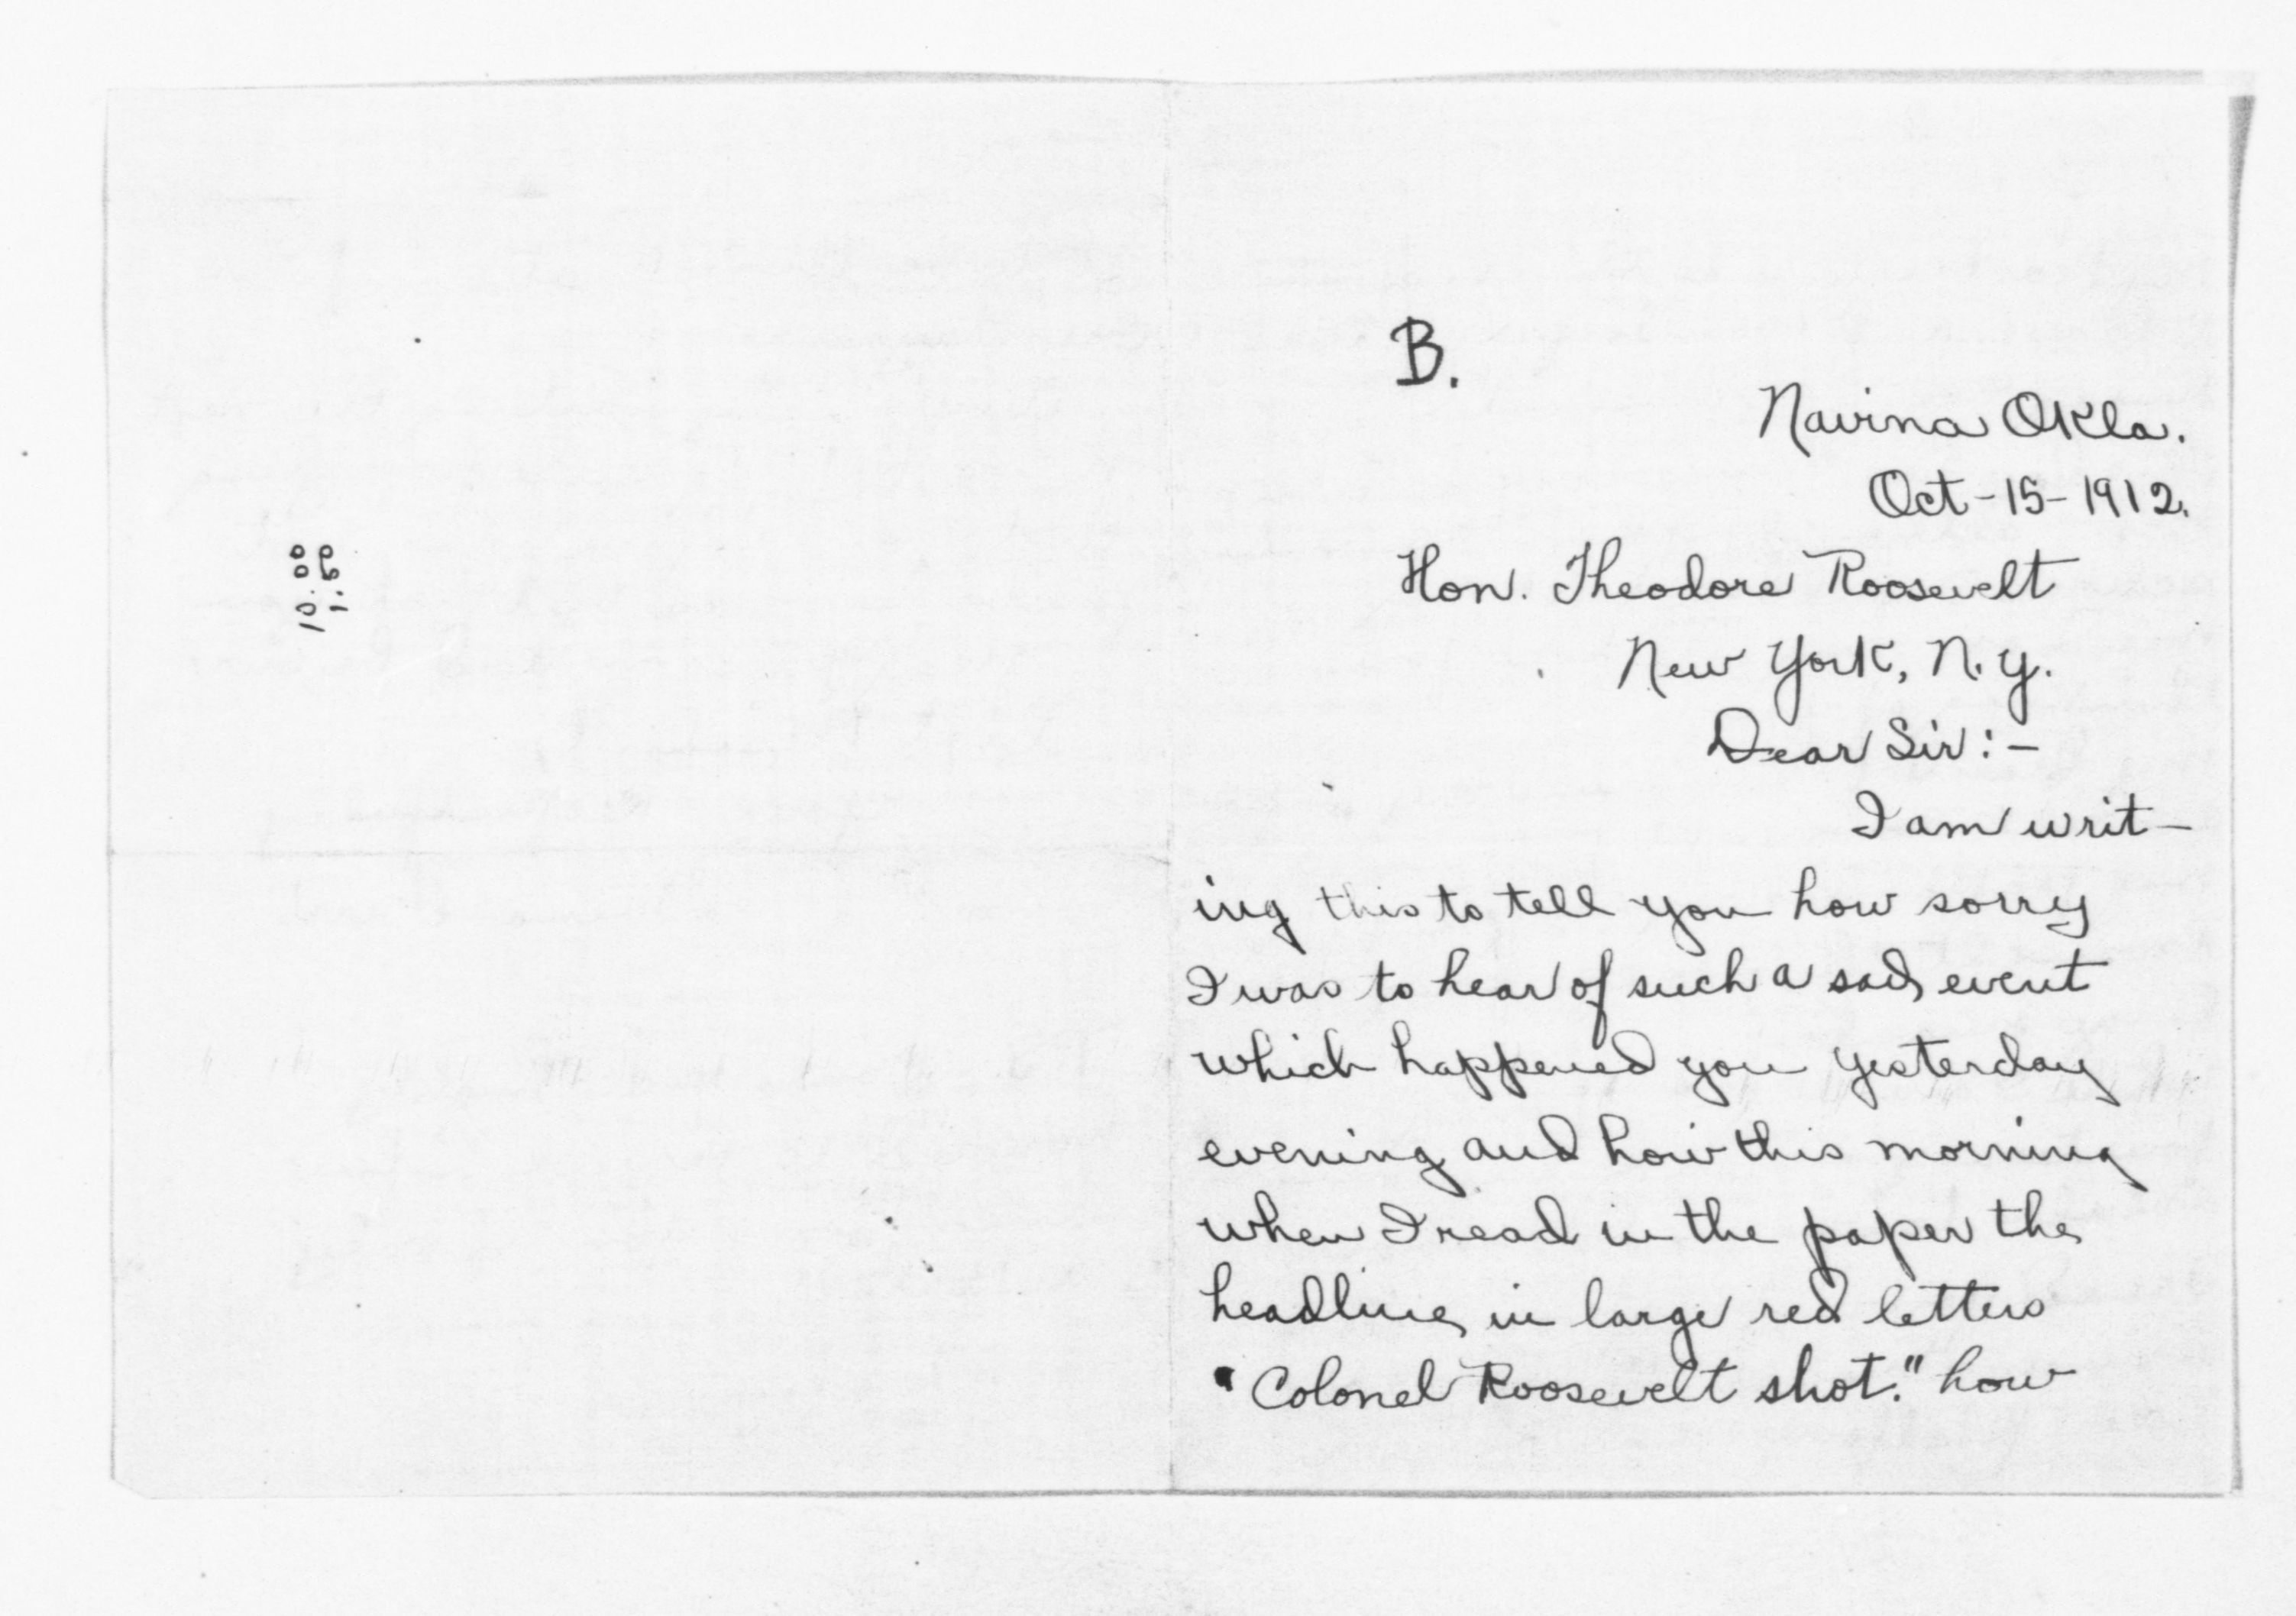 10.00
1.60
B.
Navina Okla.
Oct-15-1912.
Hon. Theodore Roosevelt
New York, N.Y.
Dear Sir:-
I am writ-
ing this to tell you how sorry
I was to hear of such a sad event
which happened you yesterday
evening and how this morning
when I read in the paper the
headline in large red letters
"Colonel Roosevelt shot." how